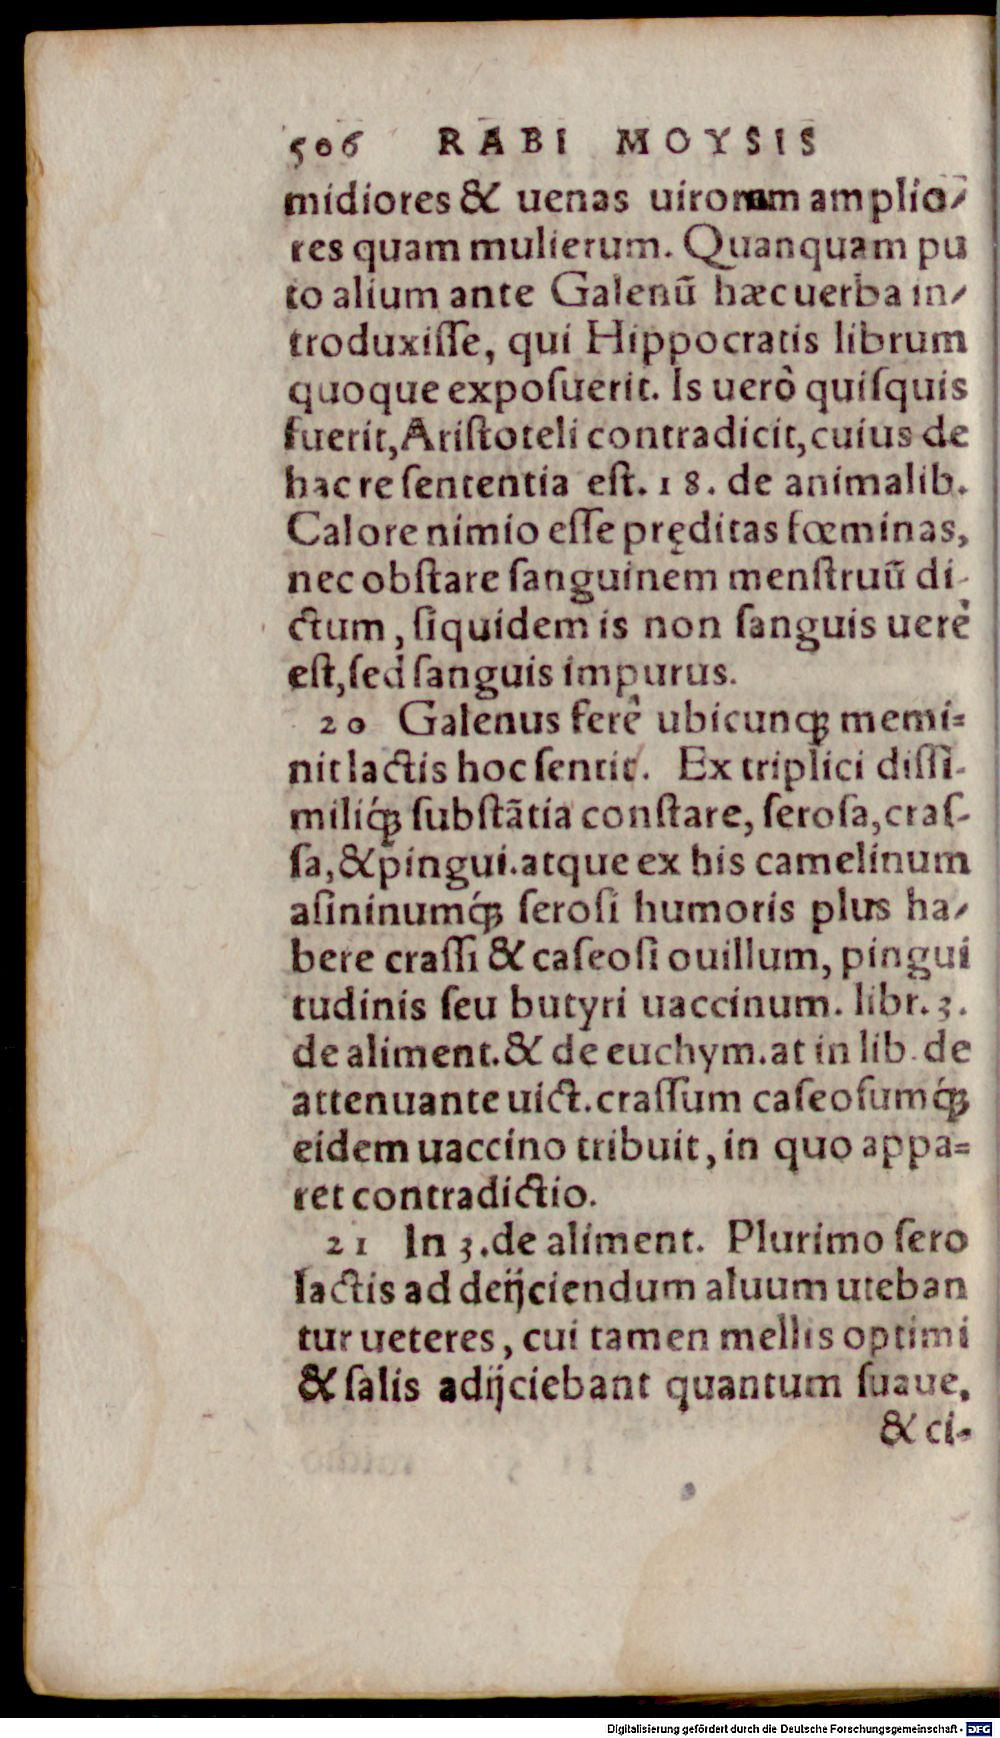 506 RABI MOYSIS
midiores & uenas uirorum amplio-
res quam mulierum. Quanquam pu
to alium ante Galenū hæc uerba in-
troduxiſſe, qui Hippocratis librum
quoque expoſuerit. Is uerò quiſquis
fuerit, Ariſtoteli contradicit, cuius de
hac re ſententia eſt. 18. de animalib.
Calore nimio eſſe pręditas fœminas,
nec obſtare ſanguinem menſtruū di-
ctum, ſiquidem is non ſanguis uerè
eſt, ſed ſanguis impurus.
20 Galenus ferè ubicunq; memi=
nit lactis hoc ſentit. Ex triplici diſſi-
miliq́; ſubſtātia conſtare, ſeroſa, craſ-
ſa, & pingui. atque ex his camelinum
aſininumq́; ſeroſi humoris plus ha-
bere craſſi & caſeoſi ouillum, pingui
tudinis ſeu butyri uaccinum. libr. 3.
de aliment. & de euchym. at in lib. de
attenuante uict. craſſum caſeoſumq́;
eidem uaccino tribuit, in quo appa=
ret contradictio.
21 In 3. de aliment. Plurimo ſero
lactis ad deijciendum aluum uteban
tur ueteres, cui tamen mellis optimi
& ſalis adijciebant quantum ſuaue,
& ci-
Digitalisierung gefördert durch die Deutsche Forschungsgemeinschaft - DFG